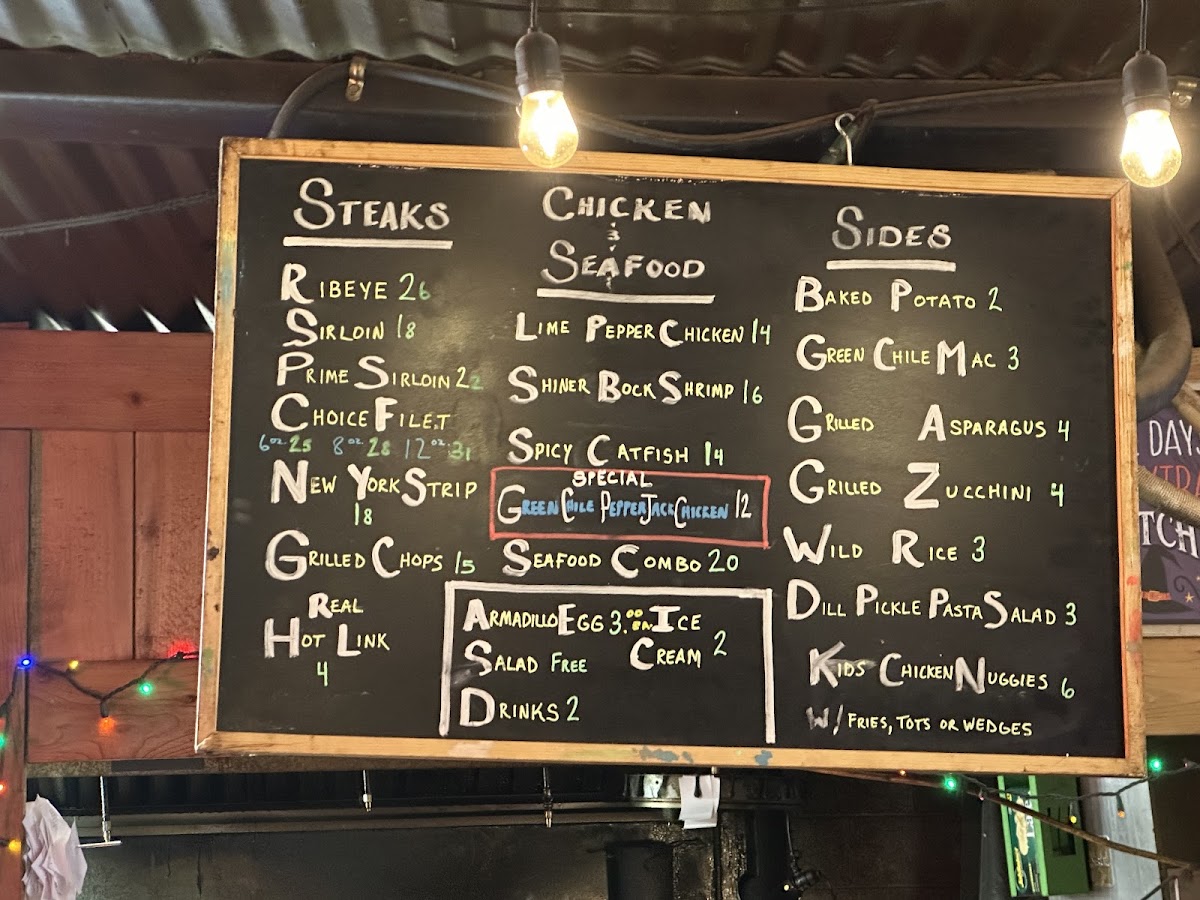 STEAKS
RIBEYE 26
SIRLOIN 18
PRIME SIRLOIN 22
CHOICE FILET
6oz 25 8oz 28 12oz 31
NEW YORK STRIP
18
GRILLED CHOPS 15
REAL
HOT LINK
4
CHICKEN
&
SEAFOOD
LIME PEPPER CHICKEN 14
SHINER BOCK SHRIMP 16
SPICY CATFISH 14
SPECIAL
GREEN CHILE PEPPERJACK CHICKEN 12
SEAFOOD COMBO 20
ARMADILLO EGG 3.00 EA
SALAD FREE
DRINKS 2
ICE
CREAM 2
SIDES
BAKED POTATO 2
GREEN CHILE MAC 3
GRILLED ASPARAGUS 4
GRILLED ZUCCHINI 4
WILD RICE 3
DILL PICKLE PASTA SALAD 3
KIDS CHICKEN NUGGIES 6
W/ FRIES, TOTS OR WEDGES
DAYS